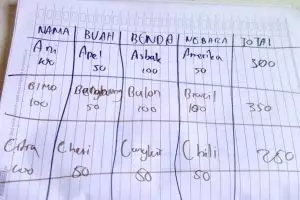 NAMA BUAH BENDA NEGARA TOTAL
Ani Apel Asbak Amerika 300
100 50 100 50
BIMO Balon Brasil 350
100 50 100 100
Citra Cheri Cangkir Chili 250
100 50 50 50